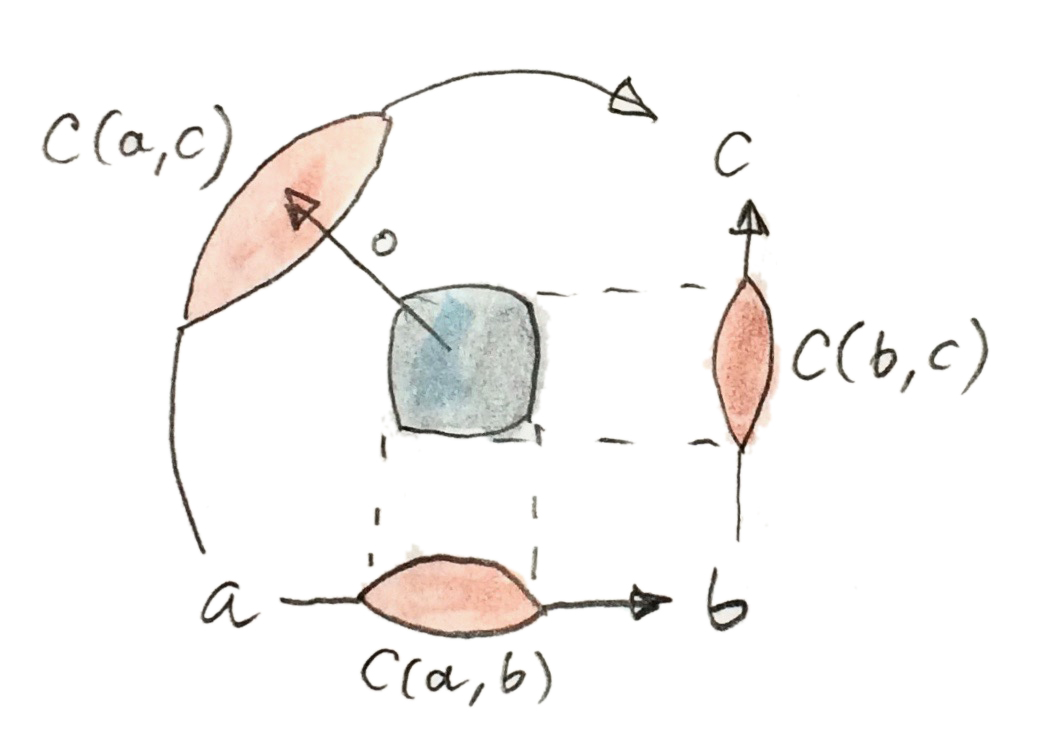 C(a,c)
C
∘
C(b,c)
a
b
C(a,b)